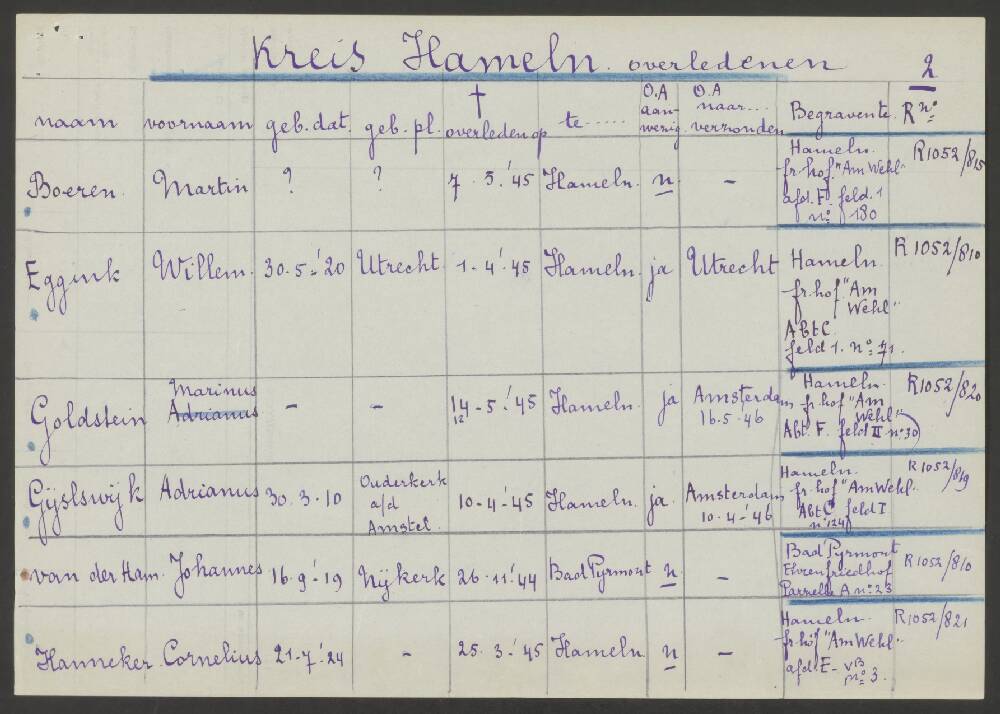 Kreis Hameln. overledenen
2
naam voornaam geb. dat. geb. pl. † overleden op te ...... O.A aan- wezig. O.A naar... verzonden Begravente. R nº
Boeren. Martin ? ? 7. 3.'45 Hameln. n - Hameln. R1052/815
fr. hof. "Am Wehl"
afd. F. feld. 1
nº 180
Eggink Willem. 30.5-'20 Utrecht. 1-4-'45 Hameln. ja Utrecht Hameln. R1052/810
fr. hof "Am
Wehl"
Abt C.
feld 1. nº 71.
Goldstein Marinus Adrianus - - 14-5-'45 Hameln. ja Amsterdam Hameln. R1052/820
12 16.5.46 fr. hof "Am
Wehl"
Abt. F. feld II nº 30
Gijslswijk Adrianus 30.3.10 Ouderkerk 10-4-'45 Hameln. ja. Amsterdam Hameln. R1052/819
a/d 10.4-'46 fr. hof "Am Wehl.
Amstel. Abt C feld I
nº 124
van der Ham. Johannes 16.9-'19 Nijkerk 26.11.'44 Bad Pyrmont n - Bad Pyrmont R1052/810
Ehrenfriedhof
Parzelle A nº 23
Hanneker Cornelius 21-7.'24 - 25.3.'45 Hameln n - Hameln. R1052/821
fr. hof "Am Wehl"
afd. E- VB
nº 3.